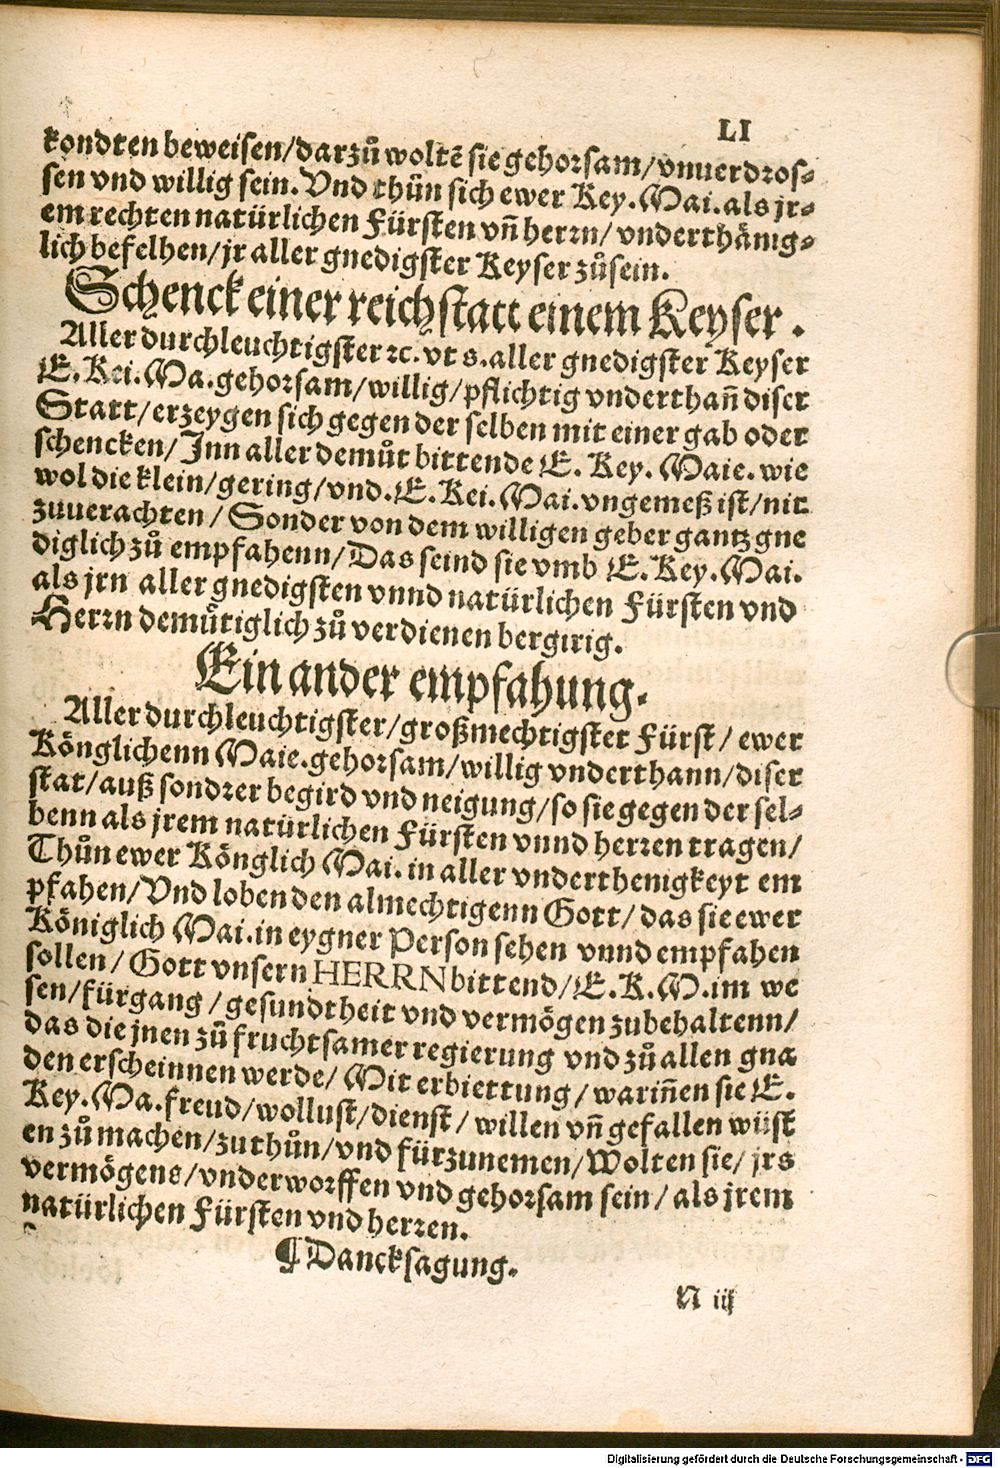 LI
kondten beweisen/darzů woltē sie gehorsam/vnuerdros-
sen vnd willig sein. Vnd thůn sich ewer Key. Mai. als jr-
em rechten natürlichen Fürsten vñ herrn/ vnderthänig-
lich befelhen/jr aller gnedigster Keyser zůsein.
Schenck einer reichstatt einem Keyser.
Aller durchleuchtigster ꝛc. vt s. aller gnedigster Keyser
E. Kei. Ma. gehorsam/willig/pflichtig vnderthañ diser
Statt/erzeygen sich gegen der selben mit einer gab oder
schencken/Inn aller demůt bittende E. Key. Maie. wie
wol die klein/gering/vnd. E. Kei. Mai. vngemeß ist/nit
zuuerachten/Sonder von dem willigen geber gantz gne
diglich zů empfahenn/Das seind sie vmb E. Key. Mai.
als jrn aller gnedigsten vnnd natürlichen Fürsten vnd
Herrn demůtiglich zů verdienen bergirig.
Ein ander empfahung.
Aller durchleuchtigster/großmechtigster Fürst/ ewer
Königlichenn Maie. gehorsam/willig vnderthann/diser
stat/auß sondrer begird vnd neigung/so sie gegen der sel-
benn als jrem natürlichen Fürsten vnnd herren tragen/
Thůn ewer Könglich Mai. in aller vnderthenigkeyt em
pfahen/Vnd loben den almechtigenn Gott/das sie ewer
Königlich Mai. in eygner Person sehen vnnd empfahen
sollen/Gott vnsern HERRN bittend/E. K. M. im we
sen/fürgang/gesundtheit vnd vermögen zubehaltenn/
das die jnen zů fruchtsamer regierung vnd zů allen gna
den erscheinnen werde/Mit erbiettung/wariñen sie E.
Key. Ma. freud/wollust/dienst/willen vñ gefallen wüst
en zů machen/zu thůn/vnd fürzunemen/Wolten sie/ jrs
vermögens/vnderworffen vnd gehorsam sein/als jrem
natürlichen Fürsten vnd herren.
¶ Dancksagung.
N iij
Digitalisierung gefördert durch die Deutsche Forschungsgemeinschaft - DFG